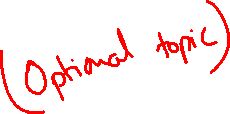 (Optional topic)